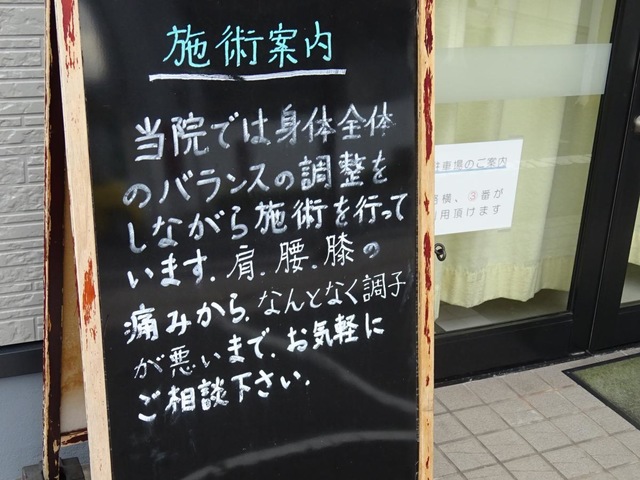 施術案内
当院では身体全体
のバランスの調整を
しながら施術を行って
います.肩.腰.膝の
痛みから.なんとなく調子
が悪いまで.お気軽に
ご相談下さい.
車場のご案内
横、③番が
用頂けます